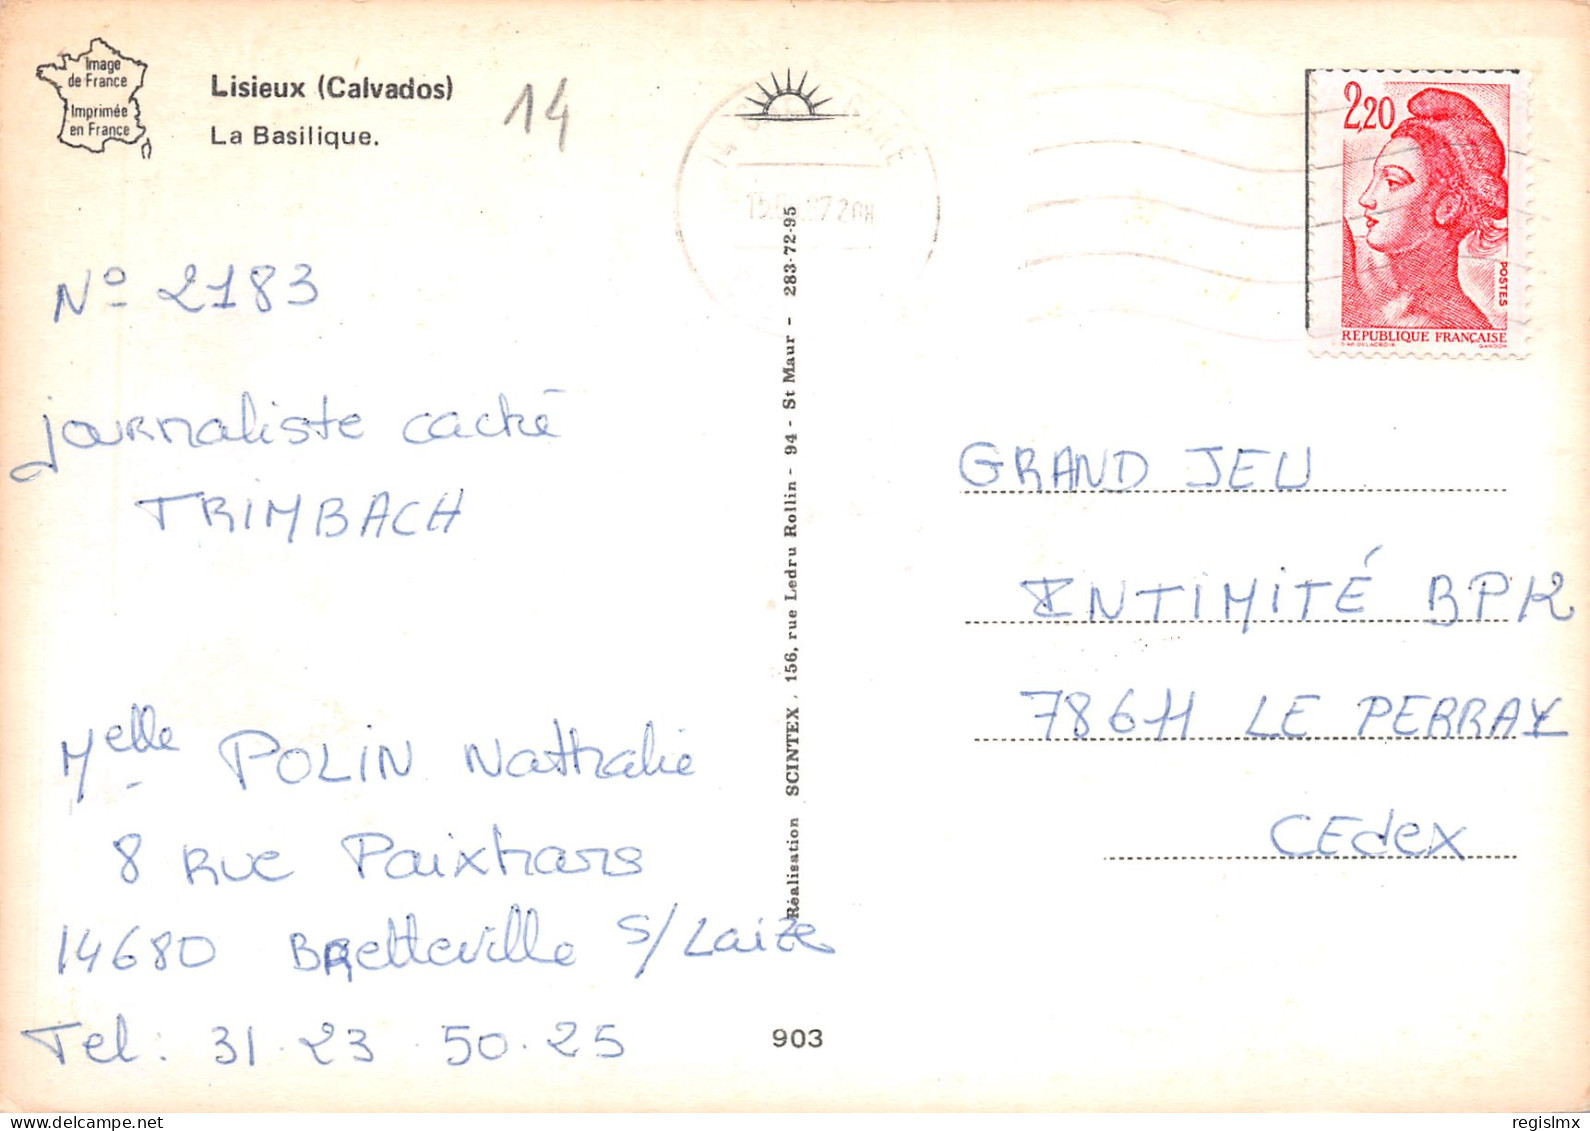 Image
de France
Imprimée
en France
Lisieux (Calvados)
La Basilique.
14
2,20
POSTES
REPUBLIQUE FRANÇAISE
D'AP. DELACROIX GANDON
N° 2183
journaliste caché
TRIMBACH
Melle POLIN Nathalie
8 Rue Paixhans
14680 BRetteville s/Laize
Tel : 31.23 50.25
Réalisation SCINTEX, 156, rue Ledru Rollin - 94 - St Maur - 283-72-95
903
GRAND JEU
INTIMITÉ BPK
78611 LE PERRAY
CEdex
regislmx